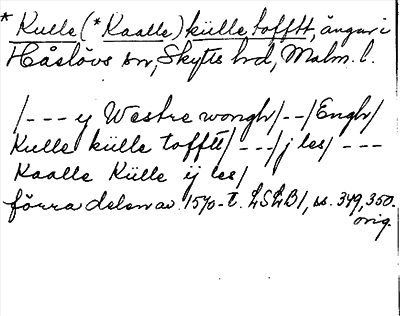 * Kulle (* Kaalle) külle tofftt, ängar i
Håslövs sn, Skytts hd, Malm. l.
/--- y Westre wongh/--/Engh/
Kulle külle tofftt/---/j les/---
Kaalle Külle ij les/
förra delen av 1570-t. LSLB 1, ss. 349, 350.
orig.